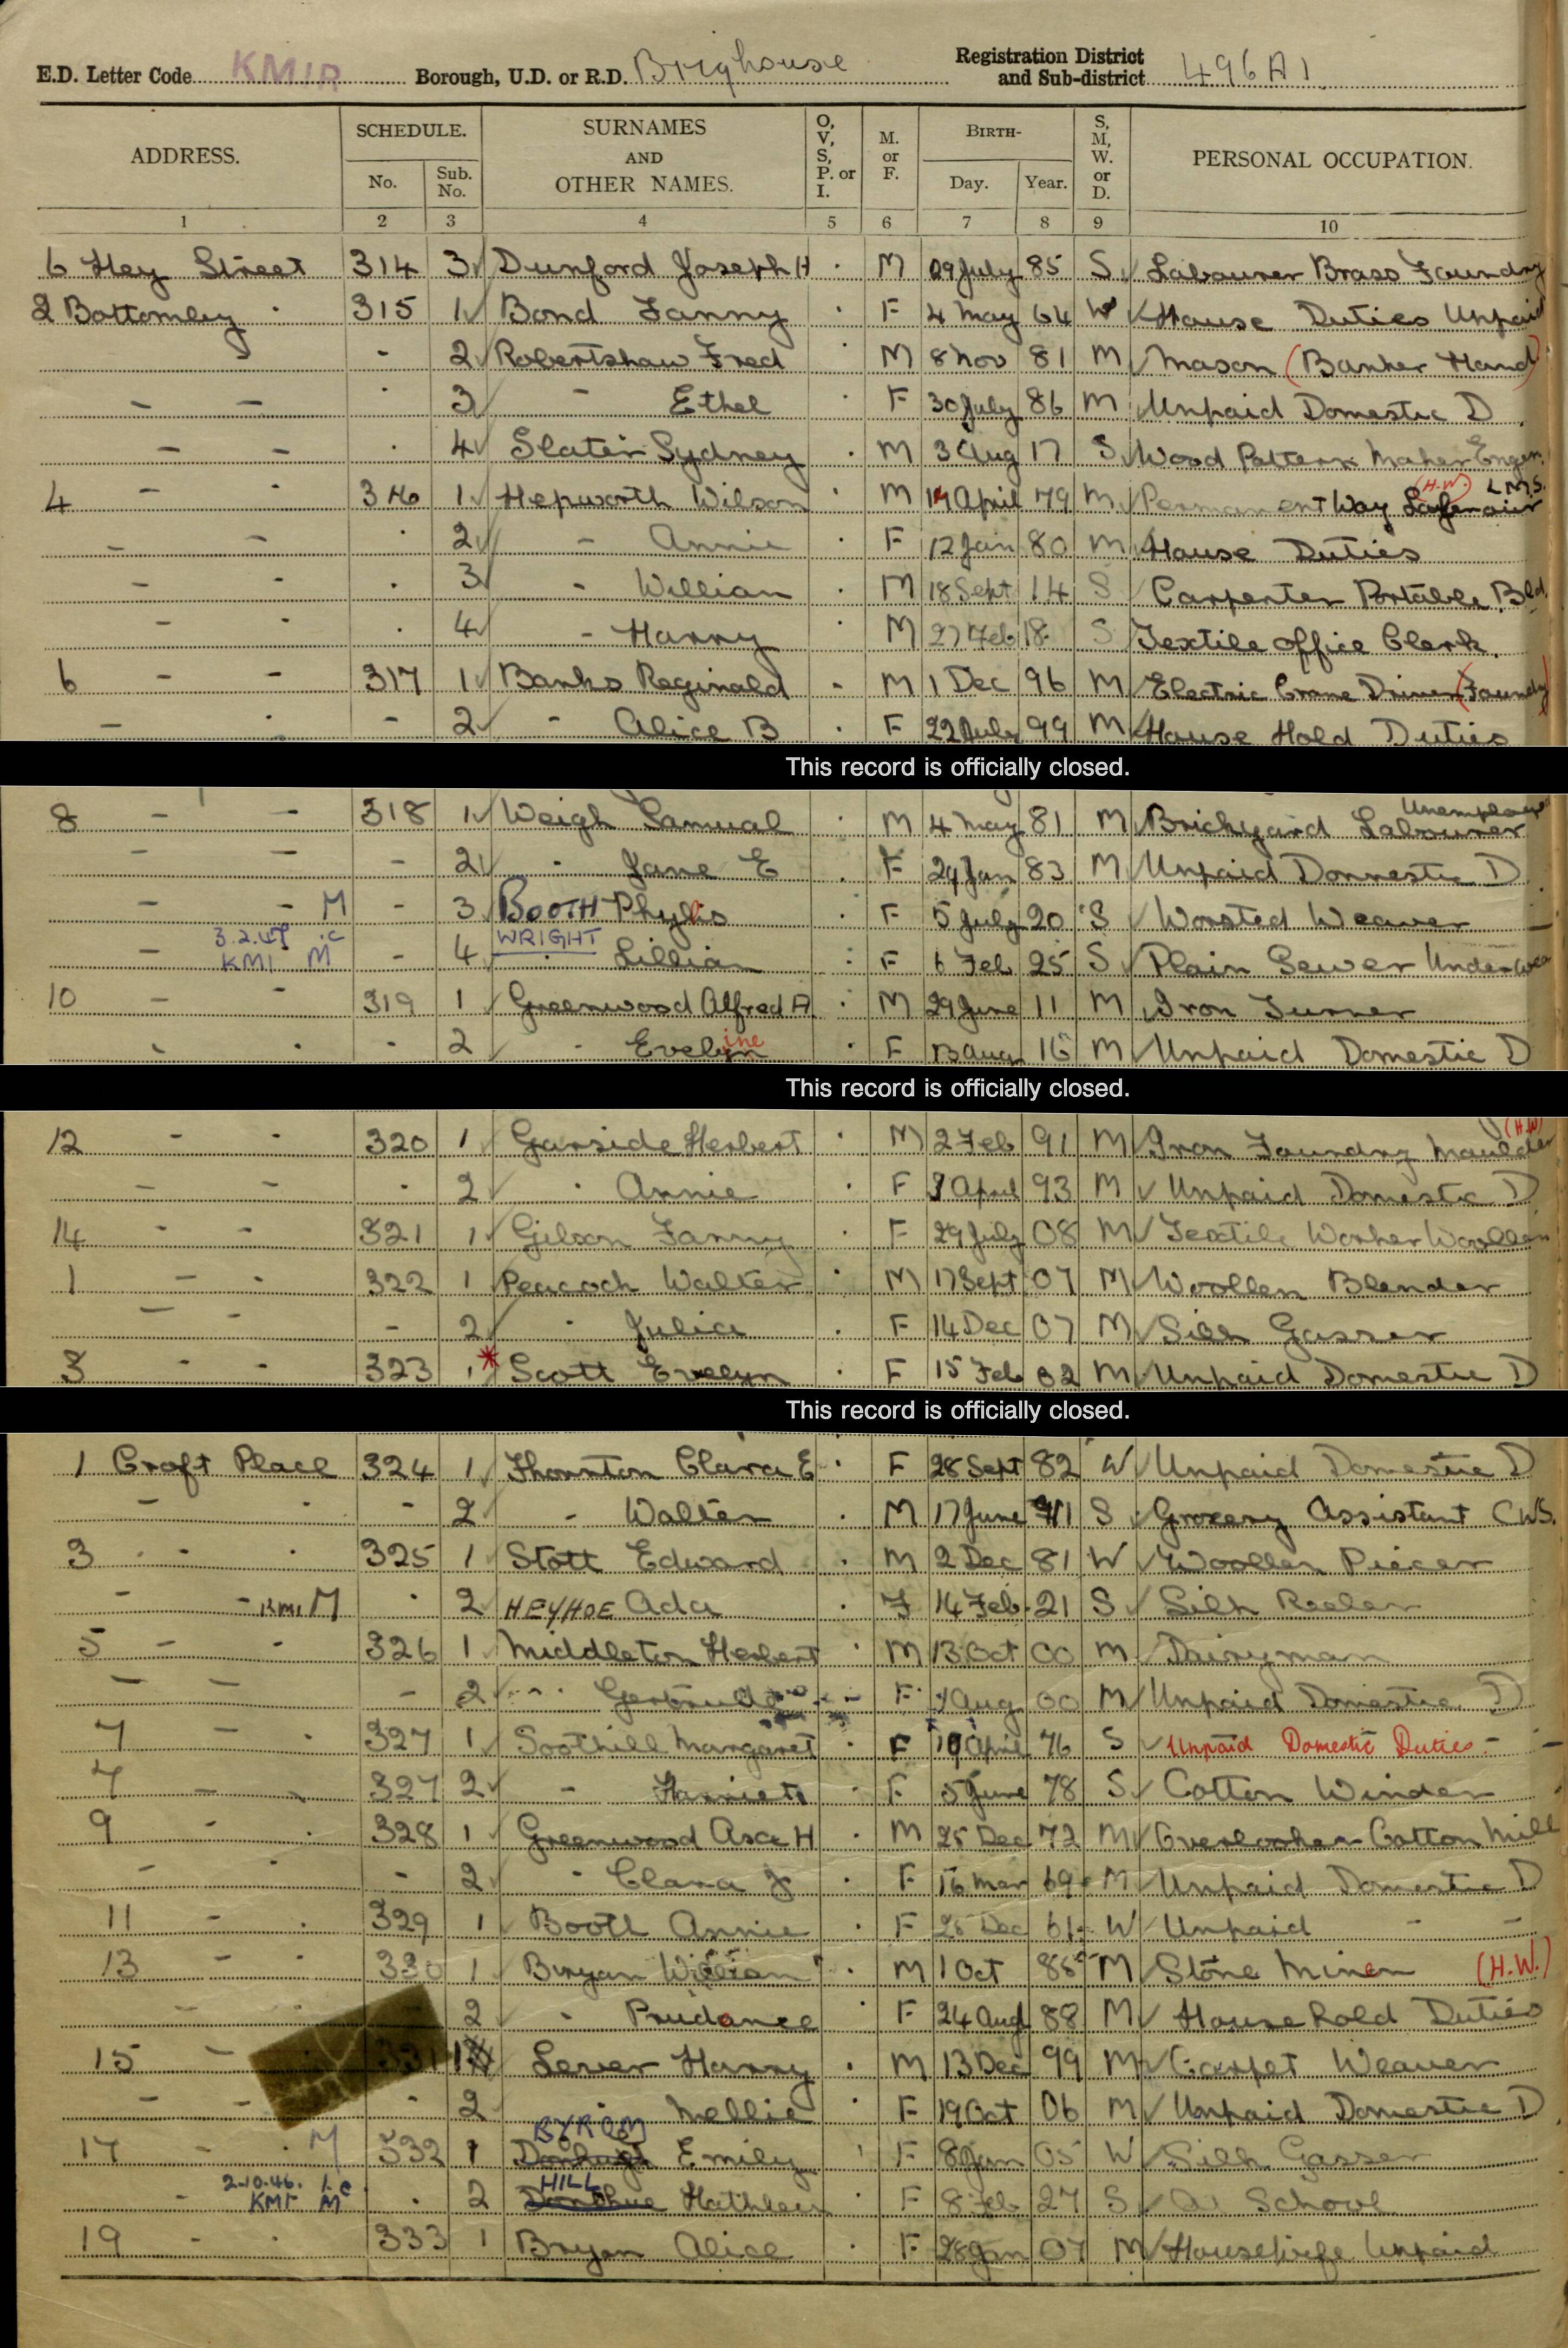 E.D. Letter Code KMIR Borough, U.D. or R.D. Brighouse Registration District and Sub-district 496 A 1
ADDRESS. SCHEDULE. No. Sub. No. SURNAMES AND OTHER NAMES. O, V, S, P. or I. M. or F. BIRTH- Day. Year. S, M, W. or D. PERSONAL OCCUPATION.
1 2 3 4 5 6 7 8 9 10
6 Hey Street 314 3 Dunford Joseph H M 09 July 85 S Labourer Brass Foundry
2 Bottomley 315 1 Bond Fanny F 4 May 64 W House Duties Unpaid
- 2 Robertshaw Fred M 8 Nov 81 M Mason (Banker Hand)
- - 3 - Ethel F 30 July 86 M Unpaid Domestic D
- - 4 Slater Sydney M 3 Aug 17 S Wood Pattern Maker Engin.
4 - 316 1 Hepworth Wilson M April 79 M Permanent Way (H.W.) L M S.
- - 2 - Annie F 12 Jan 80 M House Duties
- - 3 - William M 18 Sept 14 S Carpenter Portable Bld.
- - 4 - Harry M 27 Feb 18 S Textile Office Clerk.
6 - - 317 1 Banks Reginald M 1 Dec 96 M Electric Crane Driver (Foundry)
- - 2 - Alice B F 22 July 99 M House Hold Duties
This record is officially closed.
8 - - 318 1 Weigh Samual M 4 May 81 M Brickyard Labourer Unemployed
- - - 2 - Jane E F 24 Jan 83 M Unpaid Domestic D
- - M - 3 BOOTH Phyllis F 5 July 20 S Worsted Weaver
- 3.2.47 .c KMI M - 4 WRIGHT Lillian F 6 Feb 25 S Plain Sewer Underwear
10 - - 319 1 Greenwood Alfred A. M 29 June 11 M Iron Turner
2 - Evelyn ine F 13 Aug 16 M Unpaid Domestic D
This record is officially closed.
12 - - 320 1 Garside Herbert M 2 Feb 91 M Iron Foundry Moulder (H.W)
- - 2 - Annie F April 93 M Unpaid Domestic D
14 - - 321 1 Gibson Fanny F 29 July 08 M Textile Worker Woollen
1 - - 322 1 Peacock Walter M 17 Sept 07 M Woollen Blender
- - - 2 - Julia F 14 Dec 07 M Silk Gasser
3 - - 323 1 * Scott Evelyn F 15 Feb 02 M Unpaid Domestic D
This record is officially closed.
1 Croft Place 324 1 Thornton Clara E F 28 Sept 82 W Unpaid Domestic D
- - 2 - Walter M 17 June 11 S Grocery Assistant CWS.
3 325 1 Stott Edward M 2 Dec 81 W Woollen Piecer
- - KMI M 2 HEYHOE Ada F 14 Feb 21 S Silk Reeler
5 - - 326 1 Middleton Herbert M 13 Oct 00 M Dairyman
- - - 2 - Gertrude F Aug 00 M Unpaid Domestic D
7 - 327 1 Soothill Margaret F 19 April 76 S Unpaid Domestic Duties - -
7 - 327 2 - Harriet F 5 June 78 S Cotton Winder
9 - 328 1 Greenwood Asa H M 25 Dec 72 M Overlooker Cotton Mill
- - 2 - Clara J F 16 Mar 69 M Unpaid Domestic D
11 - 329 1 Booth Annie F 25 Dec 61 W Unpaid - -
13 - - 330 1 Bryan William M 1 Oct 85 M Stone Miner (H.W.)
- - 2 - Prudance F 24 Aug 88 M Household Duties
15 - 331 1 Lever Harry M 13 Dec 99 M Carpet Weaver
- - - 2 Nellie F 19 Oct 06 M Unpaid Domestic D
17 - M 332 1 BYROM Emily F 8 Jan 05 W Silk Gasser
- 2.10.46. 1.c KMI M 2 HILL Donohue Kathleen F 8 Feb 27 S At School
19 333 1 Bryan Alice F 28 Jan 07 M Housewife Unpaid